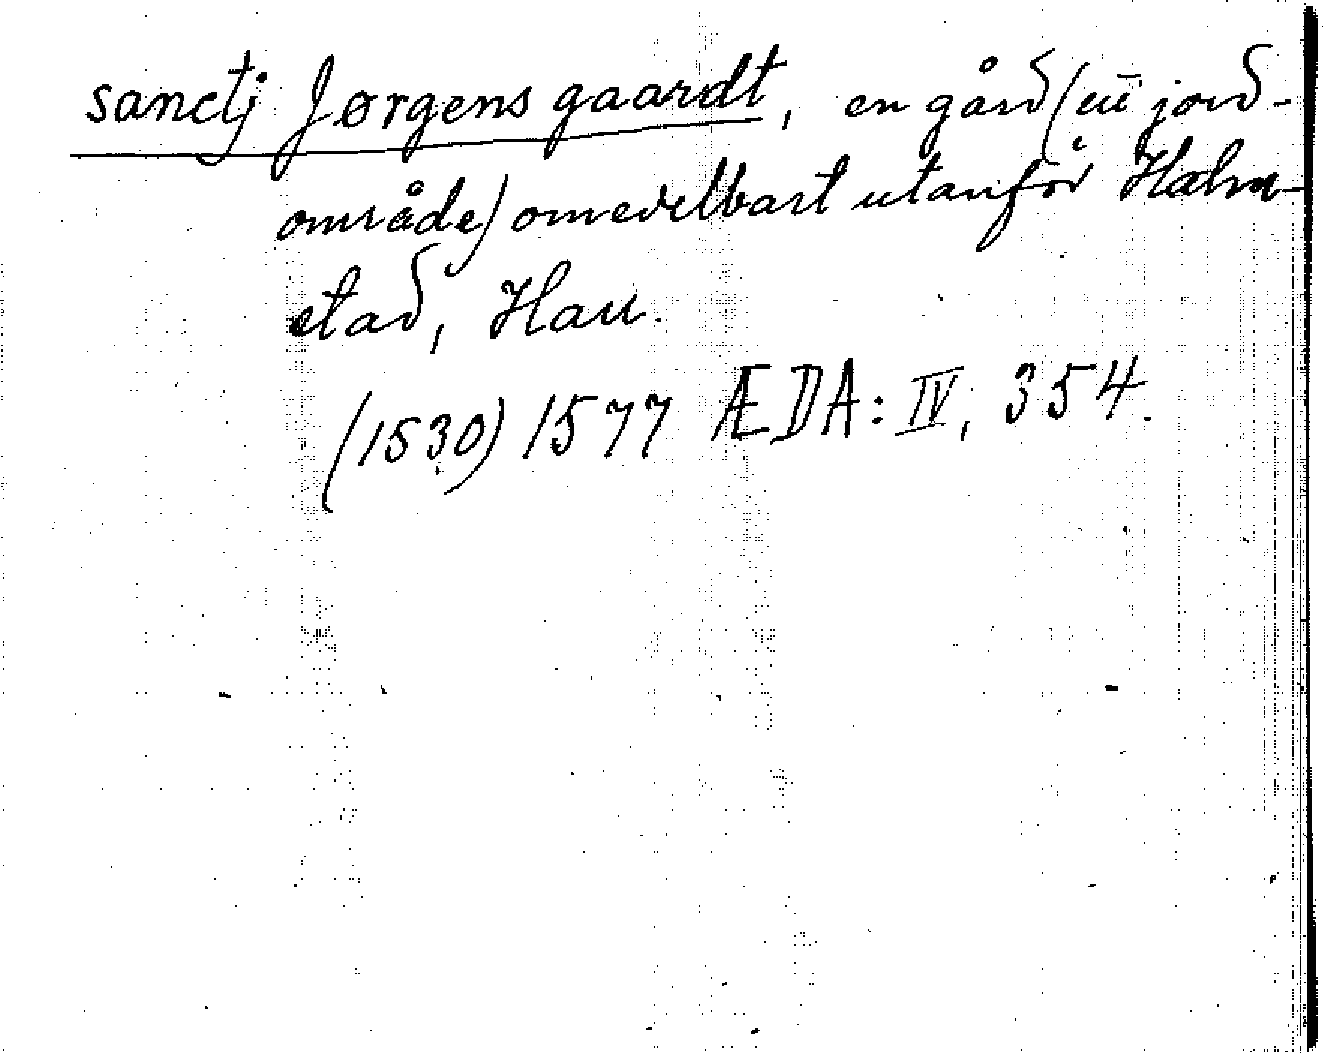 sanctj Jørgens gaardt, en gård (ett jord-
område) omedelbart utanför Halm-
stad, Hall.
(1530) 1577 ÆDA: IV, 354.